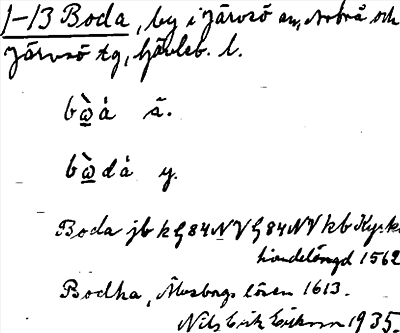 1-13 Boda, by i Järvsö sn, Arbrå och
Järvsö tg, Gävleb. l.
bὼ̲å ä.
bὼ̲då y.
Boda jb k G84NV G84NV kb Kyrk.
handelängd 1562
Bodha, Älvsborgs lösen 1613.
Nils Erik Eriksson 1935.